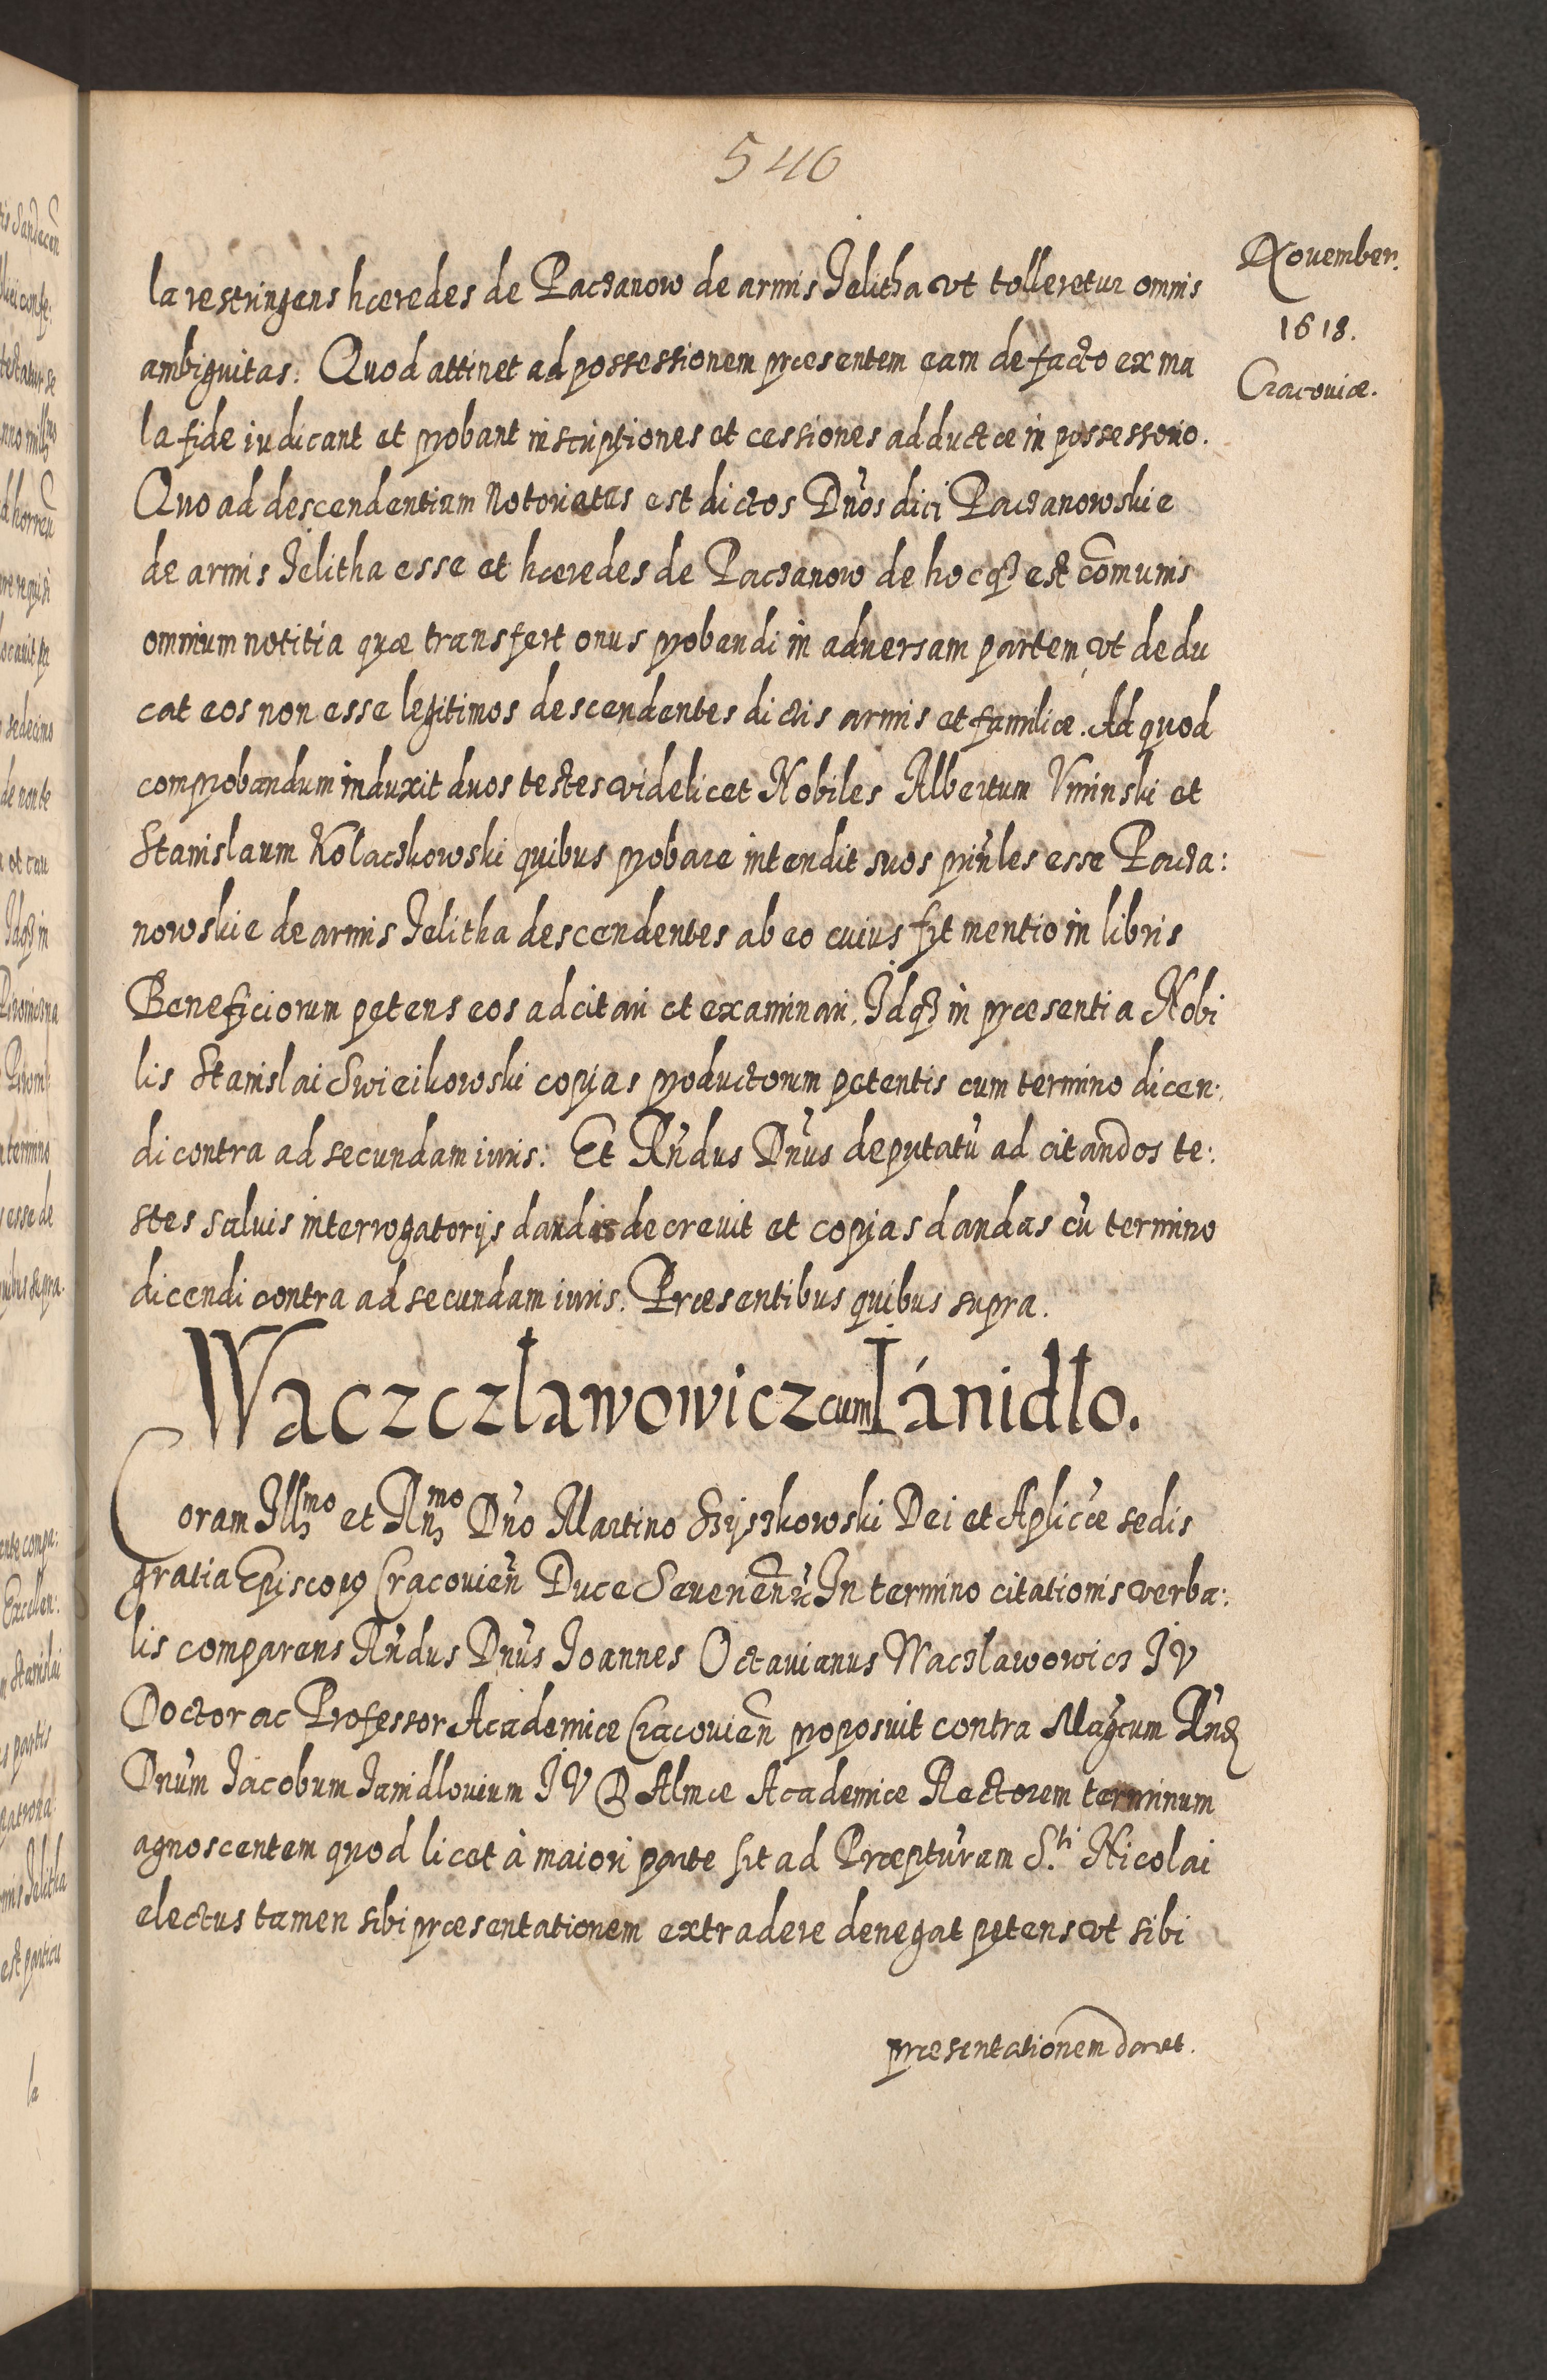 540
Nouember.
1618.
Cracouiæ.
la restringens hæredes de Paczanow de armis Jelitha vt tolleretur omnis
ambiguitas. Quod attinet ad possessionem præsentem eam de facto ex ma
la fide iudicant et probant inscriptiones et cessiones adductæ in possessorio.
Quo ad descendentium Notorietas est dictos Dn̄os dici Paczanowskie
de armis Jelitha esse et hæredes de Paczanow de hocq₃ est com̄unis
omnium notitia quæ transfert onus probandi in aduersam partem, vt dedu
cat eos non esse legitimos descendentes dictis armis et familiæ. Ad quod
comprobandum induxit duos testes videlicet Nobiles Albertum Vminski et
Stanislaum Kolaczkowski quibus probare intendit suos prin̄les esse Pacza:
nowskie de armis Jelitha descendentes ab eo cuius fit mentio in libris
Beneficiorum petens eos adcitari et examinari. Jdq₃ in præsentia Nobi
lis Stanislai Swieikowski copias productorum petentis cum termino dicen:
di contra ad secundam iuris: Et Rn̄dus Dn̄us deputatū ad citandos te:
stes saluis interrogatorijs dandis decrevit et copias dandas cū termino
dicendi contra ad secundam iuris. Præsentibus quibus supra.
Waczczławowicz cum Jánidło.
Coram Jll₃mo et Rn₃mo Dn̄o Martino Szyszkowski Dei et Aplicæ sedis
gratia Episcopo Cracovien̄ Duce Severien̄ In termino citationis verba:
lis comparens Rn̄dus Dn̄us Joannes Octauianus Waczlawowicz J V
Doctor ac Professor Academiæ Cracovien̄ proposuit contra Mag̃cum Rn̄d
Dn̄um Jacobum Janidlouium J V D Almæ Academiæ Rectorem terminum
agnoscentem quod licet à maiori parte sit ad Præpturam S.ti Nicolai
electus tamen sibi præsentationem extradere denegat petens vt sibi
præsentationem daret.